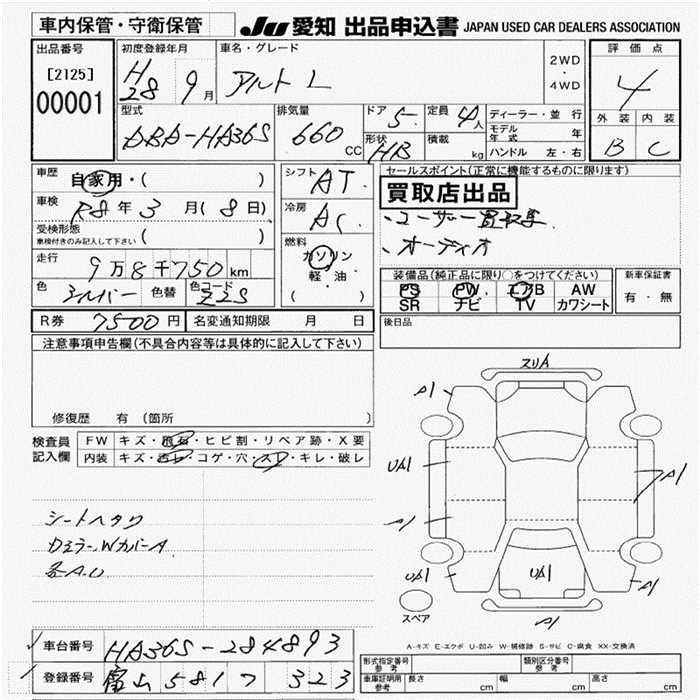 車内保管・守衛保管
JU 愛知 出品申込書 JAPAN USED CAR DEALERS ASSOCIATION
出品番号
[2125]
00001
初度登録年月
H28 9月
車名・グレード
アルト L
2WD
・
4WD
評価点
4
外装 内装
B C
型式
DBA-HA36S
排気量
660 CC
ドア
5
形状
HB
定員
4人
積載
kg
ディーラー・並行
モデル年式 年
ハンドル 左・右
車歴
自家用・( )
車検
R8年 3月(8日)
受検形態
車検付きのみ記入して下さい
( )
走行
9万8千750km
色 シルバー 色替 色コード Z2S
シフト
AT
冷房
AC
燃料
ガソリン
軽・油
( )
セールスポイント(正常に機能するものに限ります)
買取店出品
・ユーザー買取車
・オーディオ
装備品(純正品に限り○をつけてください)
PS PW エアB AW
SR ナビ TV カワシート
新車保証書
有・無
R券 7500円 名変通知期限 月 日
後日品
注意事項申告欄(不具合内容等は具体的に記入して下さい)
修復歴 有 (箇所 )
検査員記入欄
FW キズ・飛石・ヒビ割・リペア跡・X要
内装 キズ・汚レ・コゲ・穴・スレ・キレ・破レ
シートヘタリ
カエラーWカバーA
各A.U
スリA
A1
UA1
A1
A1
UA1
UA1
A1
A1
スペア
A-キズ E-エクボ U-凹み W-補修跡 S-サビ C-腐食 XX-交換済
車台番号 HA36S-284893
登録番号 富山 581 ワ 323
形式指定番号 参考
類別区分番号 参考
車庫証明用 参考 長さ cm 幅 cm 高さ cm